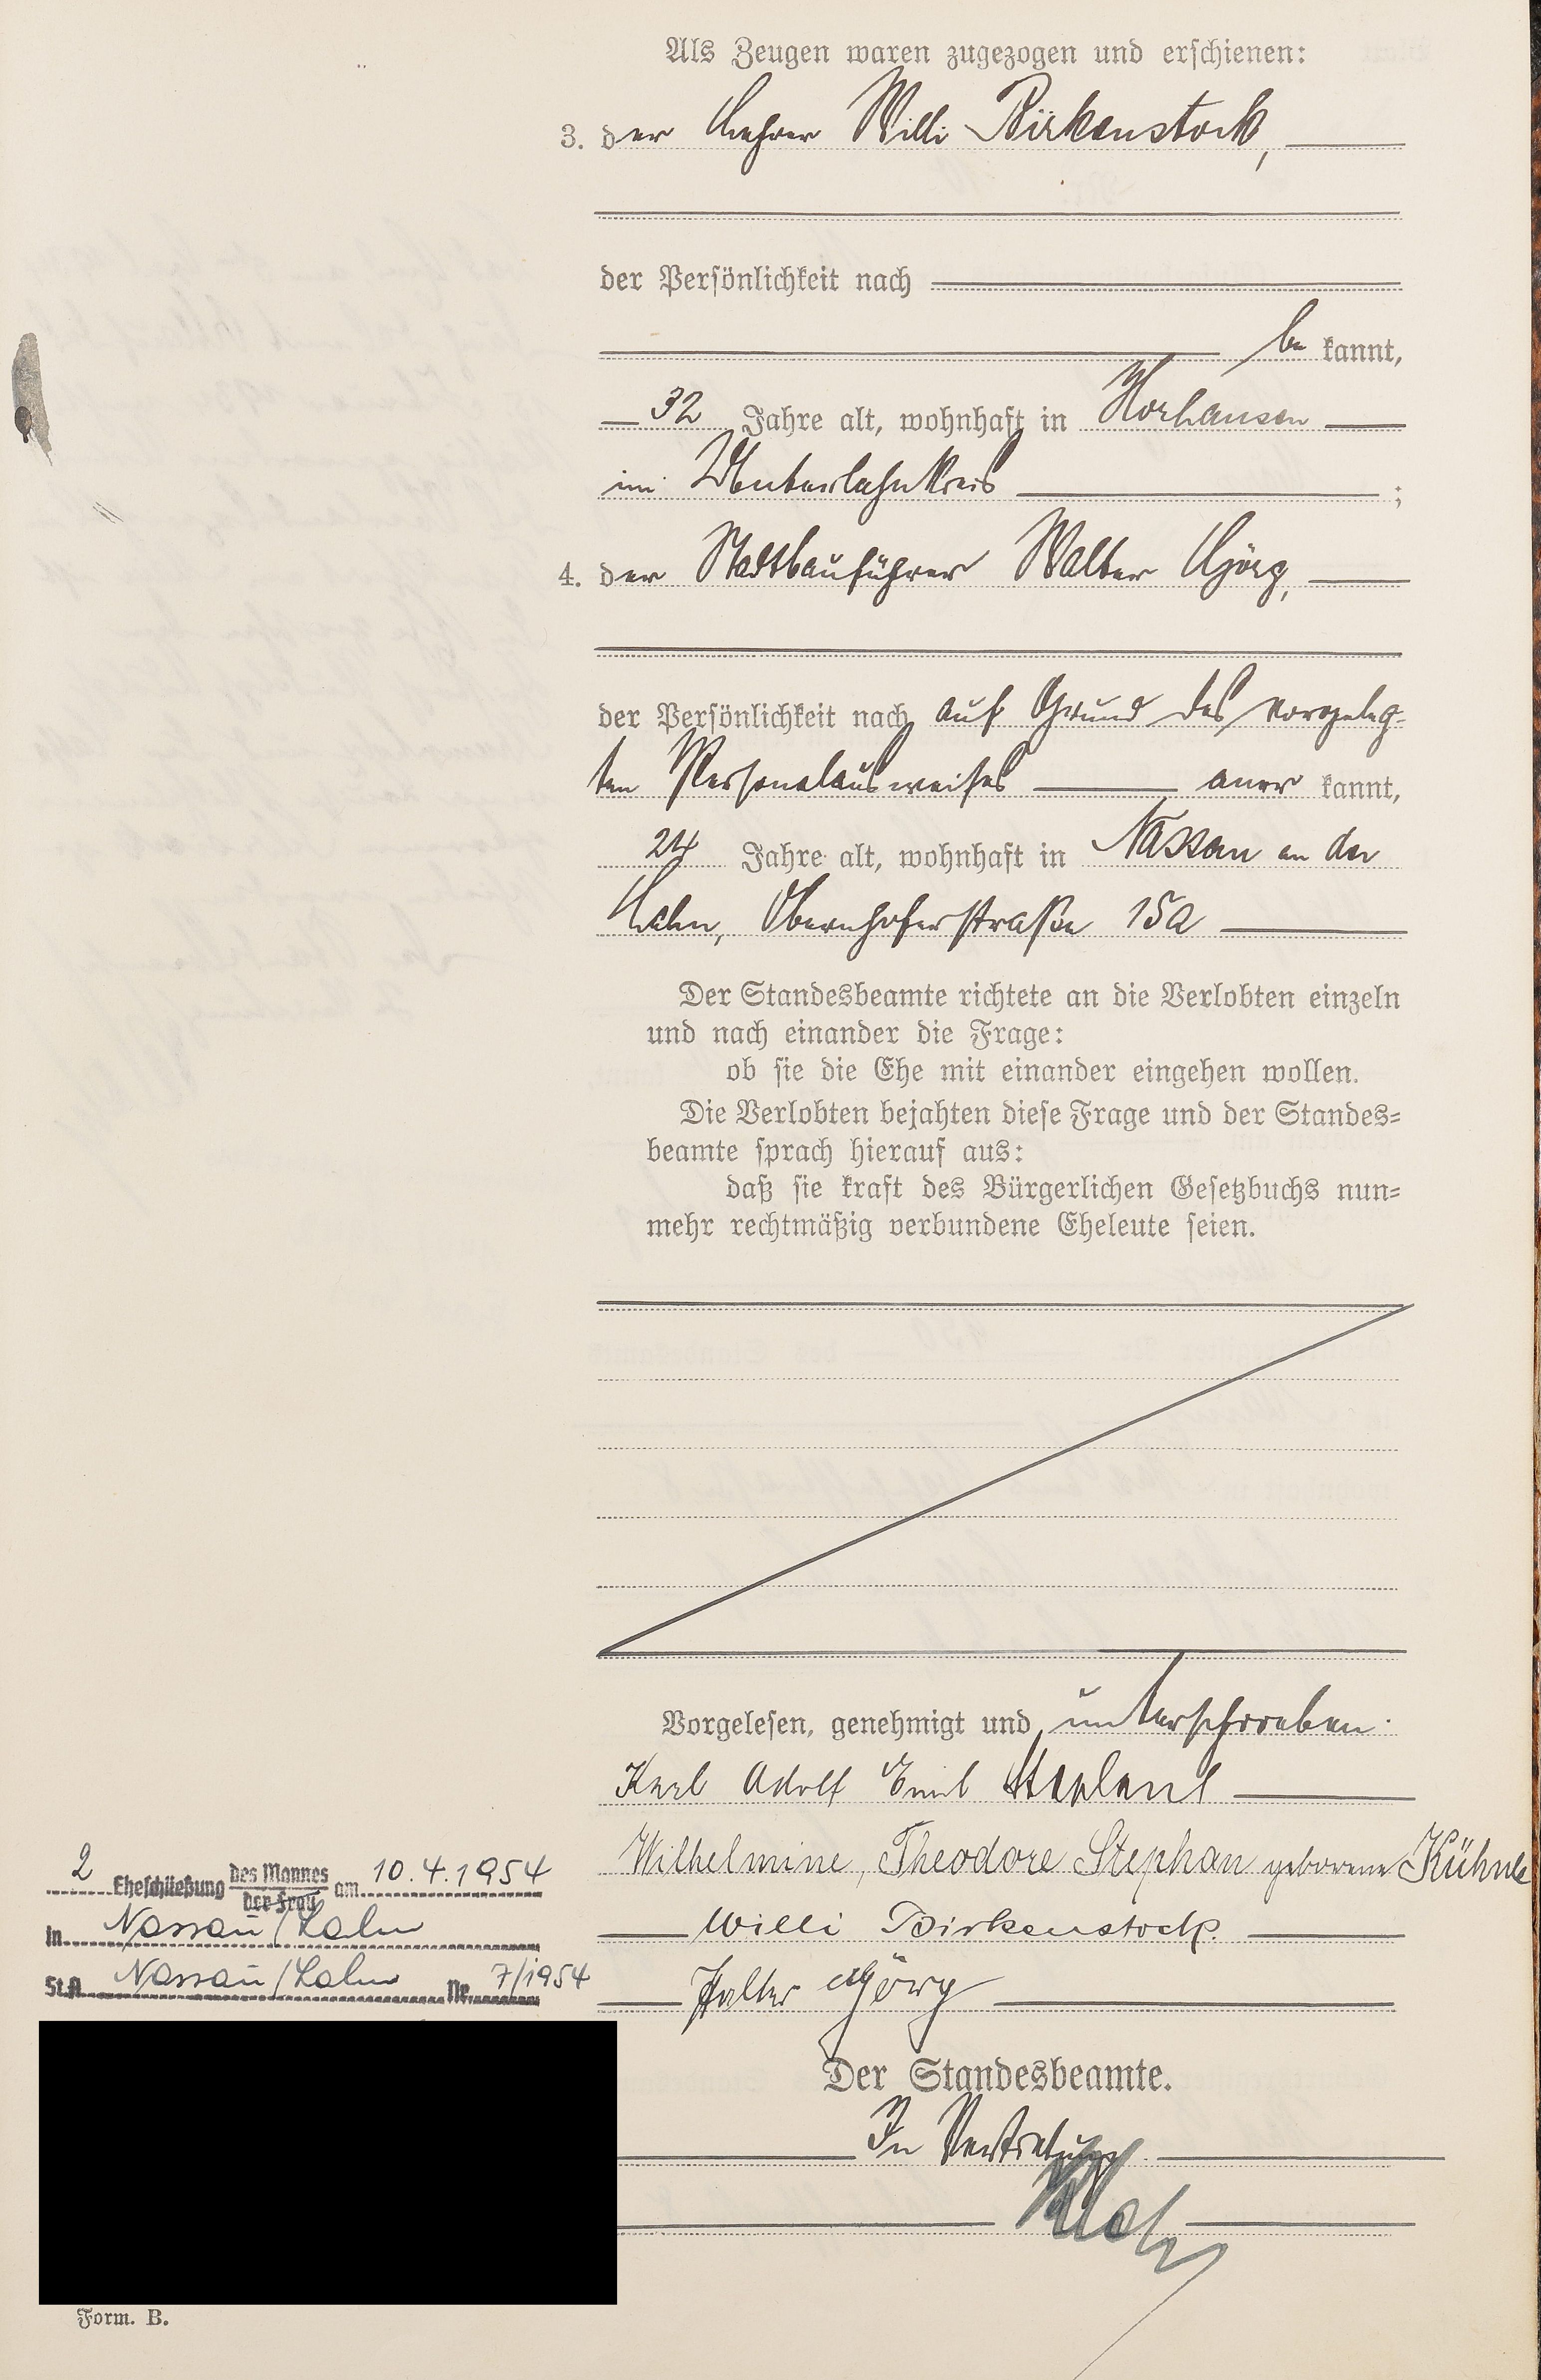 Als Zeugen waren zugezogen und erschienen:
3. der Lehrer Willi Birkenstock,
der Persönlichkeit nach
be kannt,
32 Jahre alt, wohnhaft in Horhausen
im Unterlahnkreis ;
4. der Stadtbauführer Walter Görg,
der Persönlichkeit nach auf Grund des vorgeleg-
ten Personalausweises aner kannt,
24 Jahre alt, wohnhaft in Nassau an der
Lahn, Obernhoferstraße 15a
Der Standesbeamte richtete an die Verlobten einzeln
und nach einander die Frage:
ob sie die Ehe mit einander eingehen wollen.
Die Verlobten bejahten diese Frage und der Standes-
beamte sprach hierauf aus:
daß sie kraft des Bürgerlichen Gesetzbuchs nun-
mehr rechtmäßig verbundene Eheleute seien.
Vorgelesen, genehmigt und unterschrieben.
Karl Adolf Emil Stephan
Wilhelmine, Theodore Stephan geborene Kühnle
Willi Birkenstock.
Walter Görg
Der Standesbeamte.
In Vertretung
2 Eheschließung des Mannes am 10.4.1954
der Frau
in Nassau/Lahn
St.A. Nassau/Lahn Nr. 7/1954
Form. B.